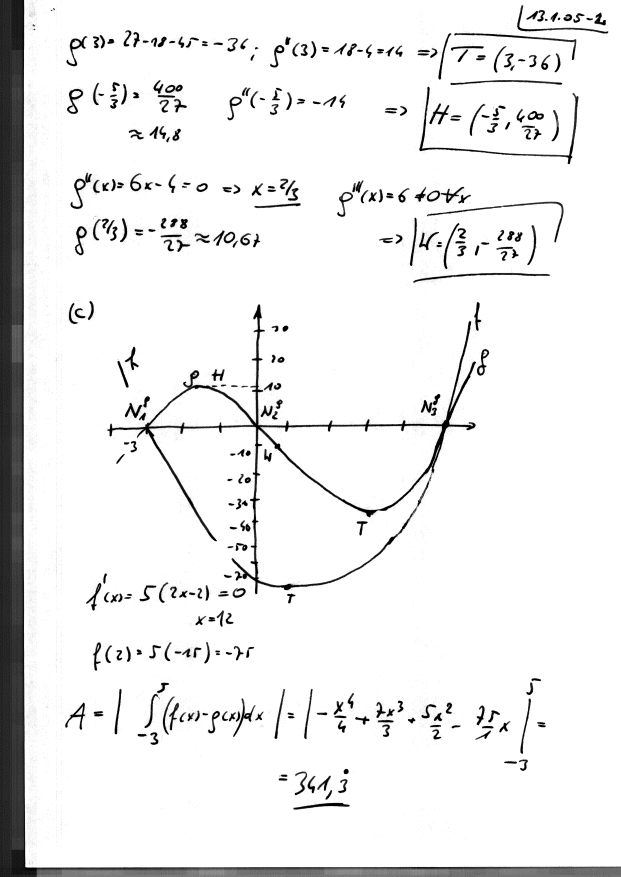 13.1.05-2
g(3)= 27-18-45=-36; g''(3)=18-4=14 => T=(3,-36)
g(-5/3)= 400/27 g''(-5/3)=-14 => H=(-5/3, 400/27)
≈14,8
g''(x)=6x-4=0 => x=2/3 g'''(x)=6≠0∀x
g(2/3)=-288/27≈10,67 => W=(2/3, -288/27)
(c)
f
30
20
g
f
g H
10
N₁ᵍ N₂ᵍ N₃ᵍ
-3
-10
W
-20
-30
-40
T
-50
-70
f'(x)= 5(2x-2)=0
T
x=12
f(2)=5(-15)=-75
A = | ∫₋₃⁵ (f(x)-g(x))dx | = | -x⁴/4 + 7x³/3 + 5x²/2 - 75/1 x |₋₃⁵ =
= 341,3̇